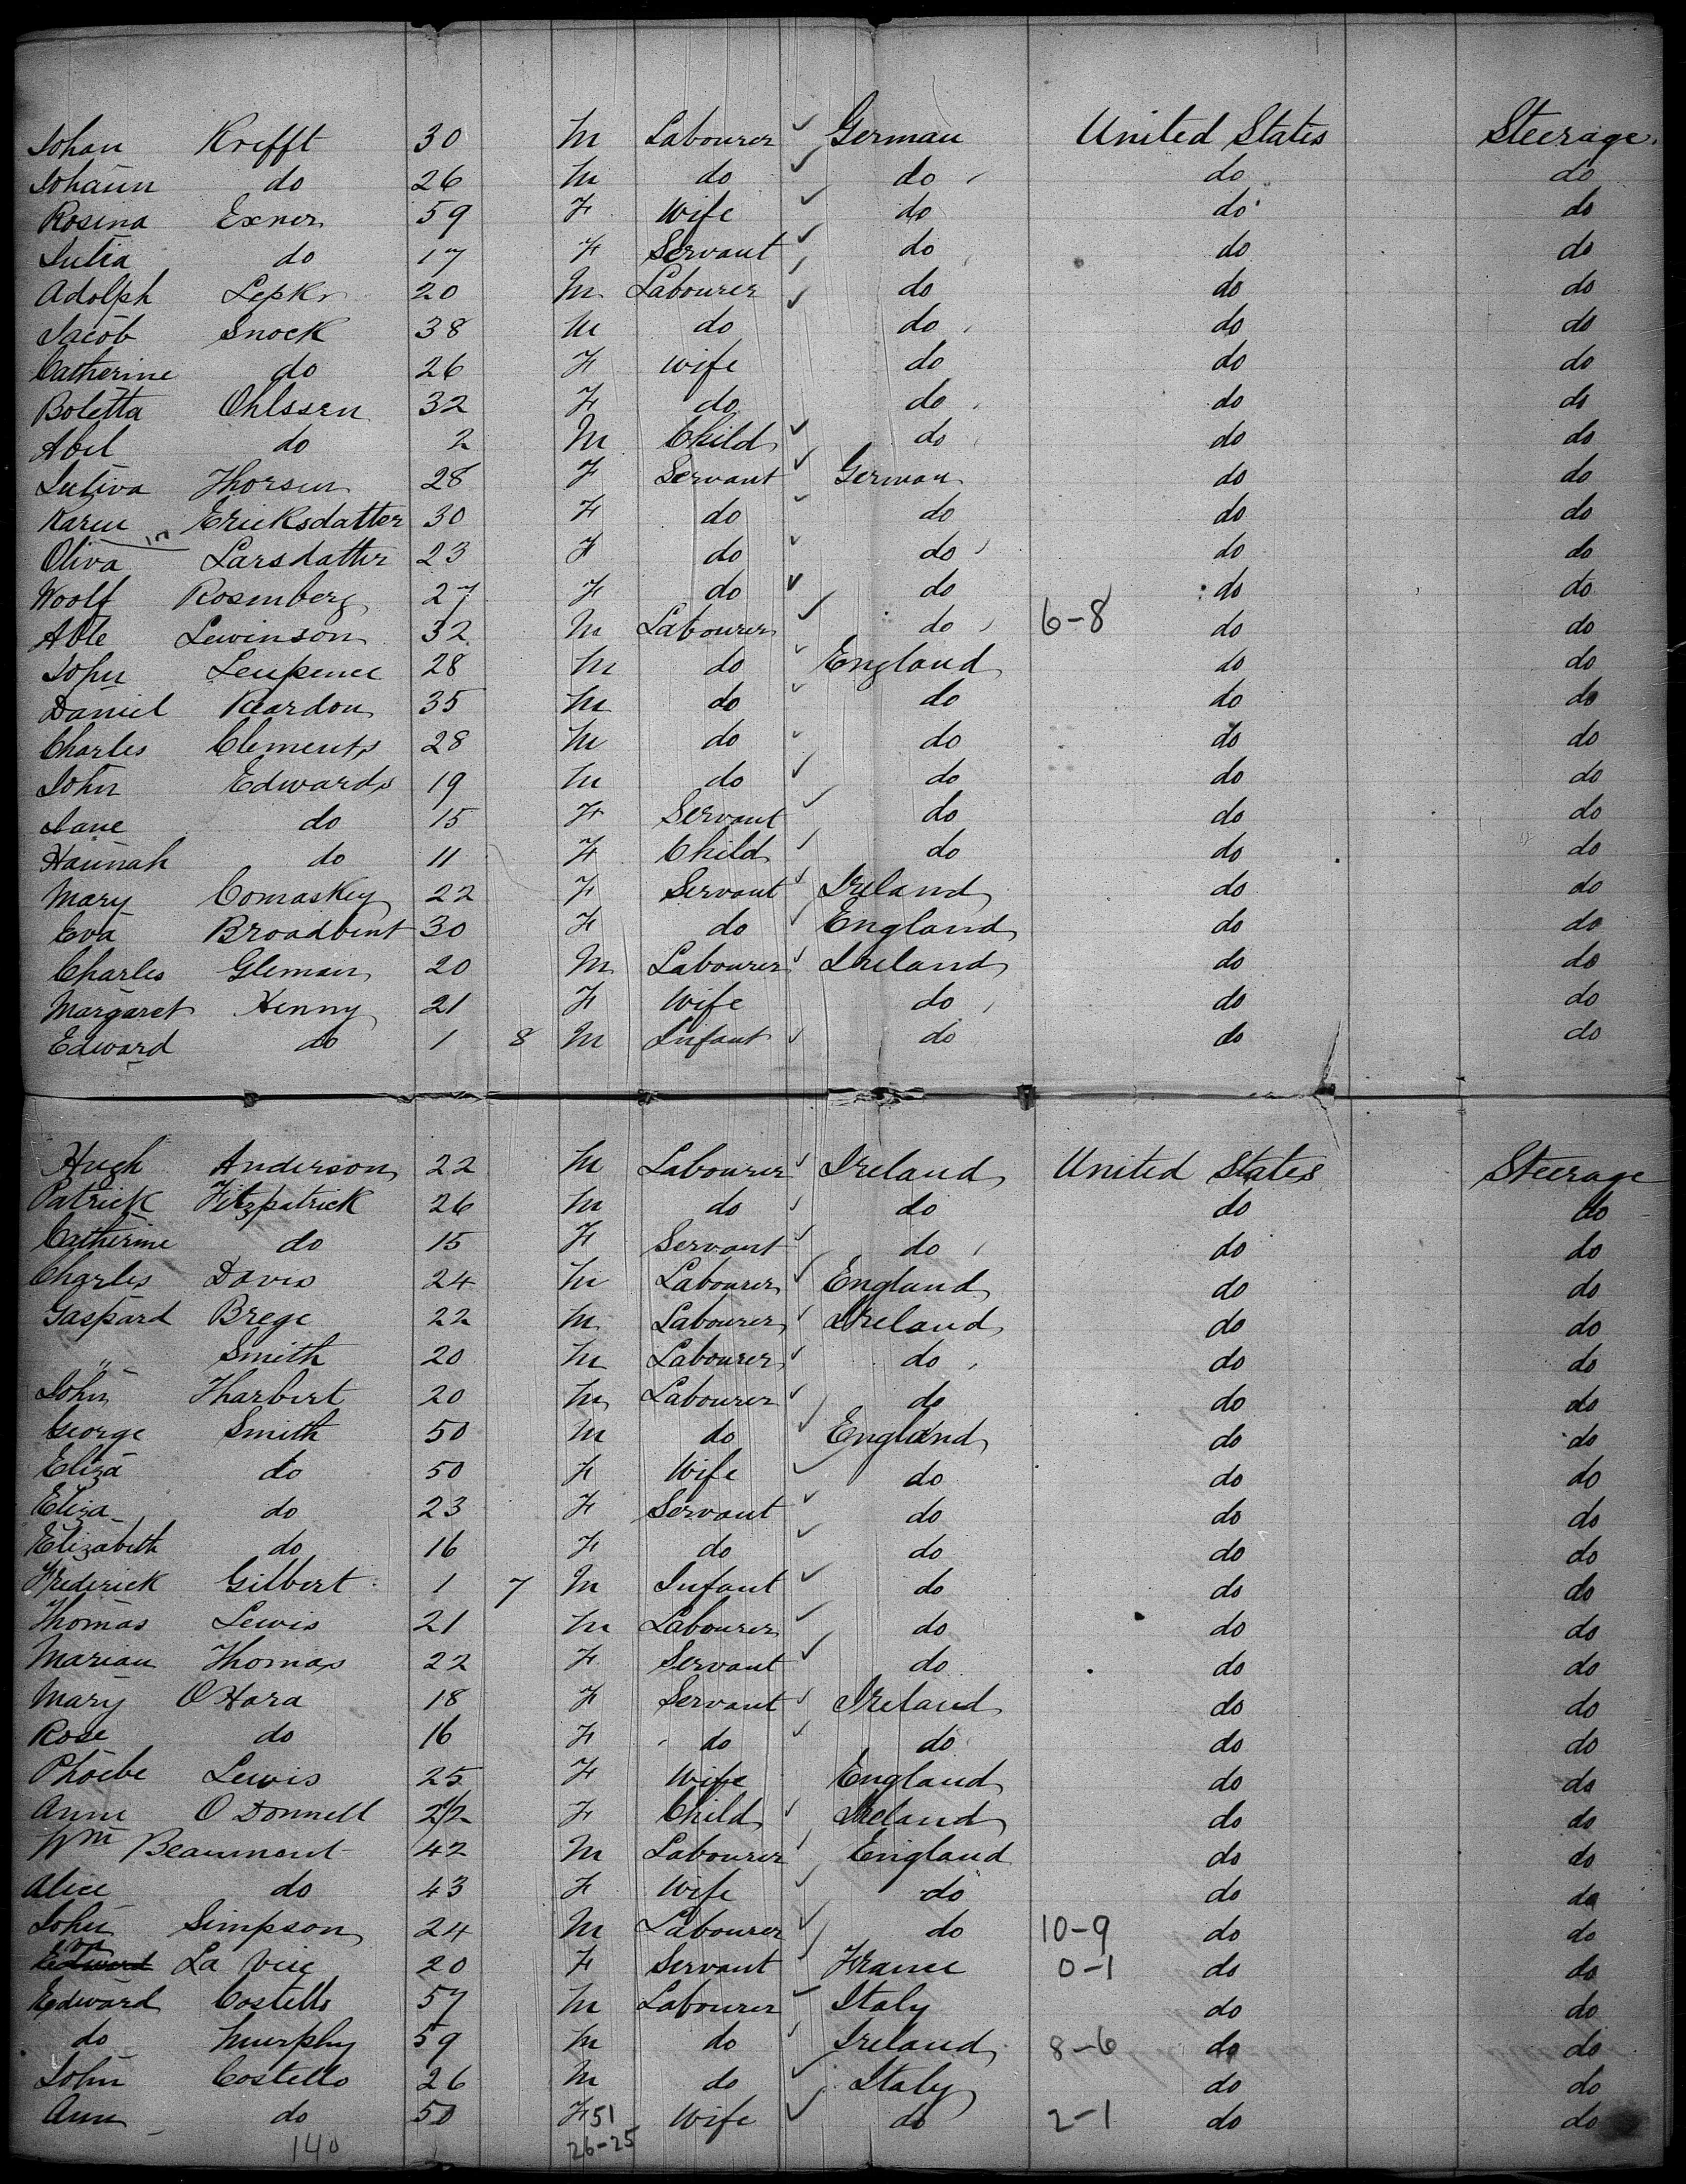 Johan Krefft 30 M Labourer ✓ German United States Steerage.
Johann do 26 M do ✓ do do do
Rosina Exner 59 F Wife ✓ do do do
Julia do 17 F Servant ✓ do do do
Adolph Lepkr 20 M Labourer ✓ do do do
Jacob Snock 38 M do ✓ do do do
Catherine do 26 F wife do do do
Boletta Ohlssen 32 F do do do do
Abel do 2 M Child ✓ do do do
Thorsen 28 F Servant ✓ German do do
Karen Ericksdatter 30 F do ✓ do do do
Oliva Larsdatter 23 F do ✓ do do do
Woolf Rosenberg 27 F do ✓ do do do
Able Lewinson 32 M Labourer ✓ do 6-8 do do
John 28 M do ✓ England do do
Daniel Reardon 35 M do ✓ do do do
Charles Clements 28 M do ✓ do do do
John Edwards 19 M do ✓ do do do
Jane do 15 F Servant ✓ do do do
Hannah do 11 F Child ✓ do do do
Mary Comaskey 22 F Servant ✓ Ireland do do
Eva Broadbent 30 F do ✓ England do do
Charles Gleman 20 M Labourer ✓ Ireland do do
Margaret Henny 21 F Wife do do do
Edward do 1 8 M Infant ✓ do do do
Hugh Anderson 22 M Labourer ✓ Ireland United States Steerage
Patrick Fitzpatrick 26 M do ✓ do do do
Catherine do 15 F Servant ✓ do do do
Charles Davis 24 M Labourer ✓ England do do
Gaspard Brege 22 M Labourer ✓ Ireland do do
" Smith 20 M Labourer ✓ do do do
John Tharbert 20 M Labourer ✓ do do do
George Smith 50 M do ✓ England do do
Eliza do 50 F Wife ✓ do do do
Eliza do 23 F Servant ✓ do do do
Elizabeth do 16 F do ✓ do do do
Frederick Gilbert 1 7 M Infant ✓ do do do
Thomas Lewis 21 M Labourer ✓ do do do
Marian Thomas 22 F Servant ✓ do do do
Mary O Hara 18 F Servant ✓ Ireland do do
Rose do 16 F do ✓ do do do
Phoebe Lewis 25 F Wife England do do
Anne O Donnell F Child ✓ Ireland do do
Wm Beaumont 42 M Labourer ✓ England do do
Alice do 43 F Wife ✓ do do do
John Simpson 24 M Labourer ✓ do 10-9 do do
Edward La Vie 20 F Servant ✓ France 0-1 do do
Edward Costello 57 M Labourer ✓ Italy do do
do Murphy 59 M do ✓ Ireland 8-6 do do
John Costello 26 M do ✓ Italy do do
Ann do 50 F 51 Wife ✓ do 2-1 do do
140 26-25